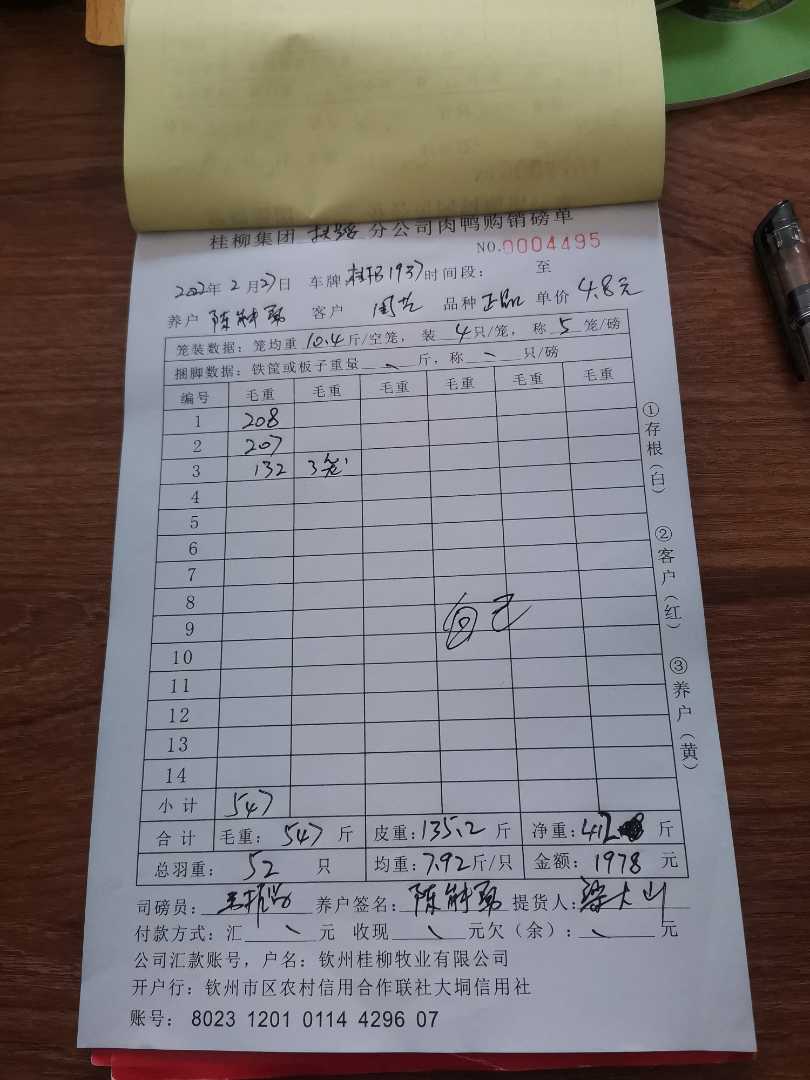 桂柳集团 分公司肉鸭购销磅单
NO.0004495
2022年2月27日 车牌:桂 1937 时间段: 至
养户 陈 客户 品种 正品 单价 4.8元
笼装数据:笼均重 10.4 斤/空笼, 装 4 只/笼, 称 5 笼/磅
捆脚数据:铁筐或板子重量 、 斤, 称 、 只/磅
编号 毛重 毛重 毛重 毛重 毛重 毛重
1 208
2 207
3 132 3笼
4
5
6
7
8
9
10
11
12
13
14
小计 547
合计 毛重: 547 斤 皮重: 135.2 斤 净重: 412 斤
总羽重: 52 只 均重: 7.92 斤/只 金额: 1978 元
司磅员: 养户签名: 陈 提货人: 梁大山
付款方式:汇 、 元 收现 、 元欠(余): 、 元
公司汇款账号,户名:钦州桂柳牧业有限公司
开户行:钦州市区农村信用合作联社大垌信用社
账号: 8023 1201 0114 4296 07
①存根(白)
②客户(红)
③养户(黄)